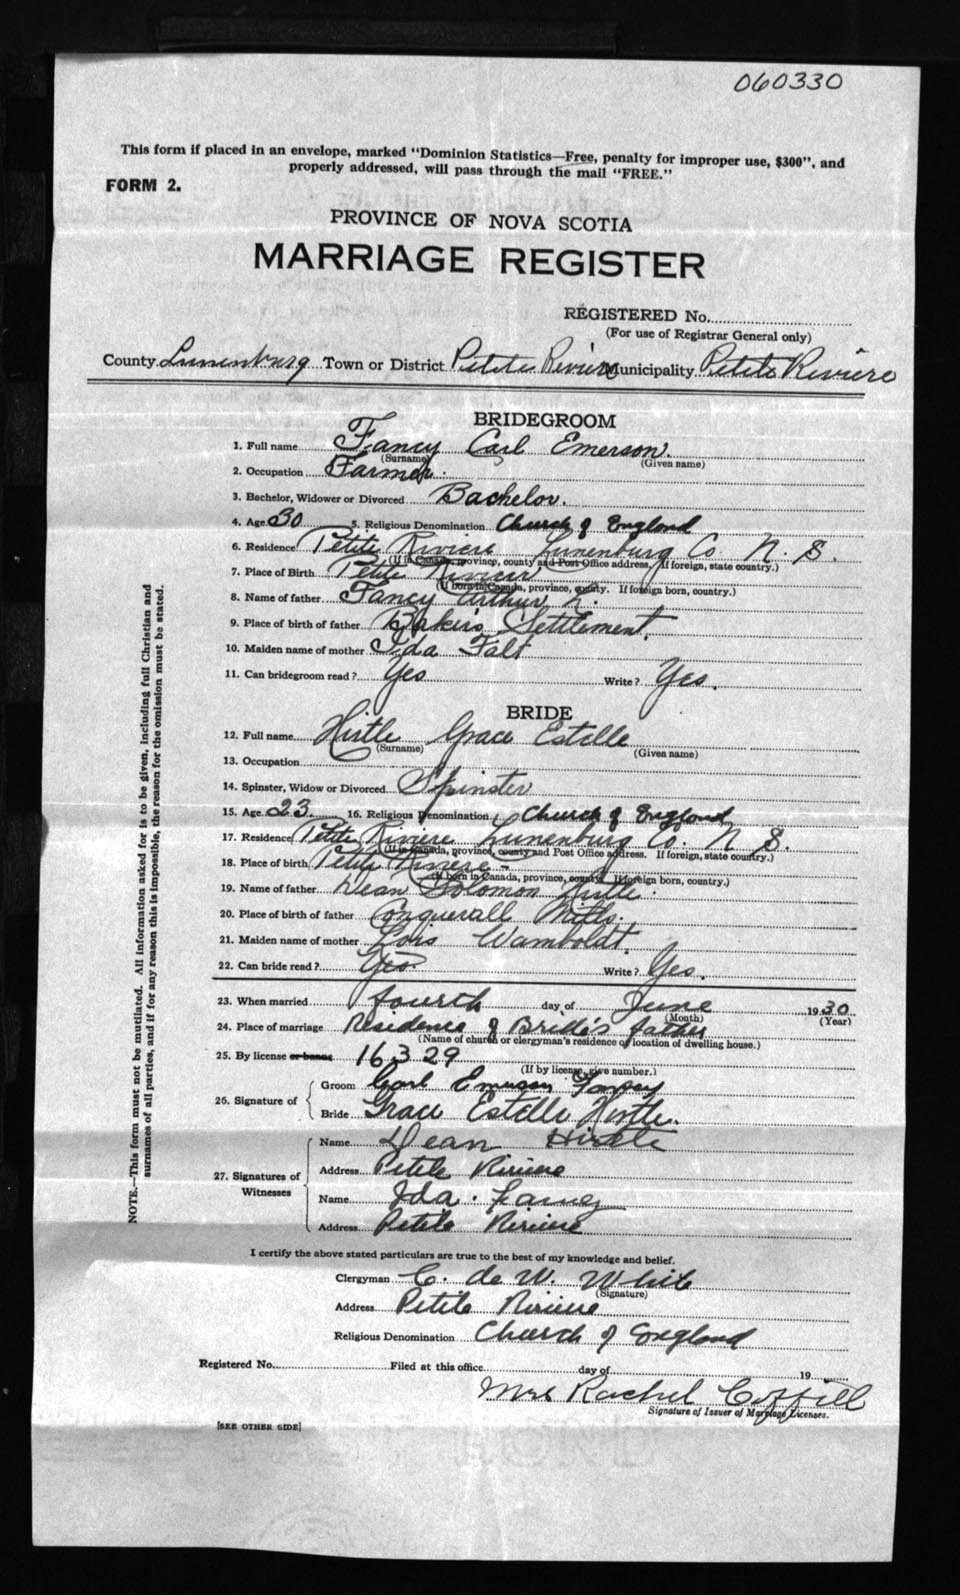 060330
This form if placed in an envelope, marked "Dominion Statistics—Free, penalty for improper use, $300", and
properly addressed, will pass through the mail "FREE."
FORM 2.
PROVINCE OF NOVA SCOTIA
MARRIAGE REGISTER
REGISTERED No.
(For use of Registrar General only)
County Lunenburg Town or District Petite Riviere Municipality Petite Riviere
BRIDEGROOM
1. Full name Fancy Carl Emerson.
(Surname) (Given name)
2. Occupation Farmer.
3. Bachelor, Widower or Divorced Bachelor.
4. Age 30 5. Religious Denomination Church of England
6. Residence Petite Riviere Lunenburg Co. N. S.
(If in Canada, province, county and Post Office address. If foreign, state country.)
7. Place of Birth Petite Riviere
(If born in Canada, province, county. If foreign born, country.)
8. Name of father Fancy Arthur
9. Place of birth of father Bakers Settlement.
10. Maiden name of mother Ida Falt
11. Can bridegroom read? Yes Write? Yes.
BRIDE
12. Full name Hirtle Grace Estelle
(Surname) (Given name)
13. Occupation
14. Spinster, Widow or Divorced Spinster
15. Age 23 16. Religious Denomination Church of England
17. Residence Petite Riviere Lunenburg Co. N S.
(If in Canada, province, county and Post Office address. If foreign, state country.)
18. Place of birth Petite Riviere
(If born in Canada, province, county. If foreign born, country.)
19. Name of father Dean Solomon Hirtle.
20. Place of birth of father Conquerall Mills.
21. Maiden name of mother Lois Wamboldt.
22. Can bride read? Yes Write? Yes.
23. When married fourth day of June 1930
(Month) (Year)
24. Place of marriage Residence of Bride's father
(Name of church or clergyman's residence or location of dwelling house.)
25. By license or banns 16329
(If by license, give number.)
26. Signature of Groom Carl Emerson Fancy
Bride Grace Estelle Hirtle.
27. Signatures of Witnesses Name Dean Hirtle
Address Petite Riviere
Name Ida. Fancy
Address Petite Riviere
I certify the above stated particulars are true to the best of my knowledge and belief.
Clergyman C. de W. White
(Signature)
Address Petite Riviere
Religious Denomination Church of England
Registered No. Filed at this office day of 19
Mrs Rachel Coffill
Signature of Issuer of Marriage Licenses.
[SEE OTHER SIDE]
NOTE.—This form must not be mutilated. All information asked for is to be given, including full Christian and
surnames of all parties, and if for any reason this is impossible, the reason for the omission must be stated.